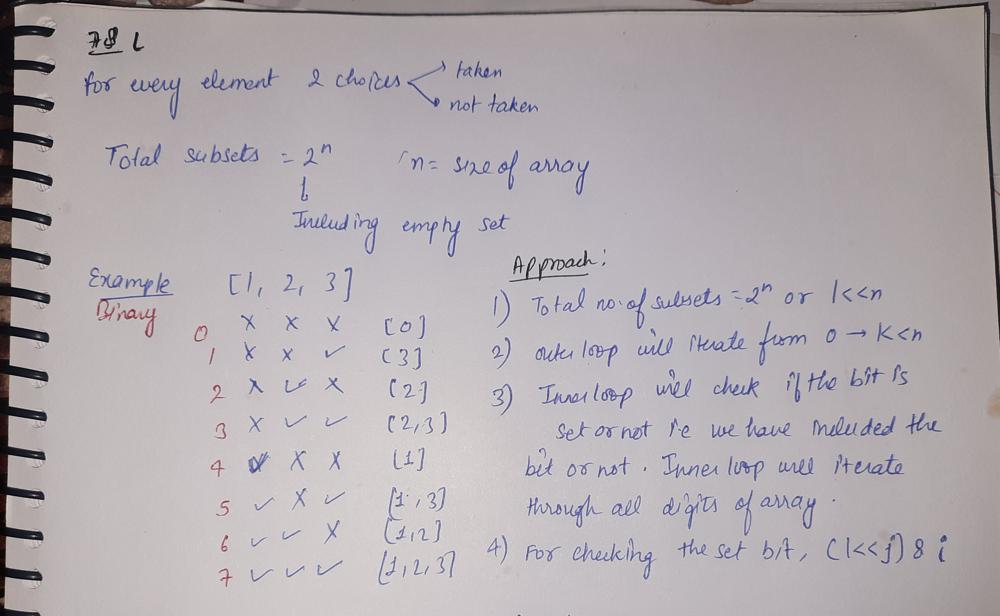 78 L
for every element 2 choices
taken
not taken
Total subsets = 2ⁿ n = size of array
Including empty set
Example [1, 2, 3]
Binary
0 × × × [0]
1 × × ✓ [3]
2 × ✓ × [2]
3 × ✓ ✓ [2,3]
4 ✓ × × [1]
5 ✓ × ✓ [1,3]
6 ✓ ✓ × [1,2]
7 ✓ ✓ ✓ [1,2,3]
Approach:
1) Total no. of subsets = 2ⁿ or 1<<n
2) outer loop will iterate from 0 → K<n
3) Inner loop will check if the bit is
set or not i.e we have included the
bit or not. Inner loop will iterate
through all digits of array.
4) For checking the set bit, (1<<j) & i